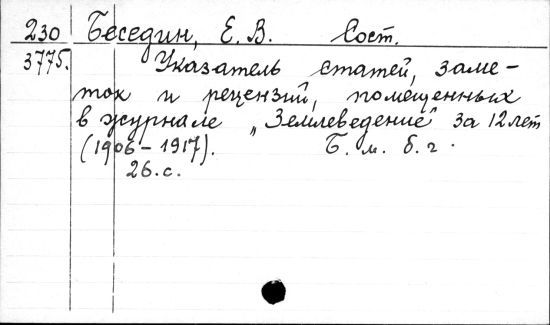 230 Беседин, Е. В. Сост.
3775. Указатель статей, заме-
ток и рецензий, помещенных
в журнале „Землеведение" за 12 лет
(1906-1917). Б. м. б. г.
26. с.